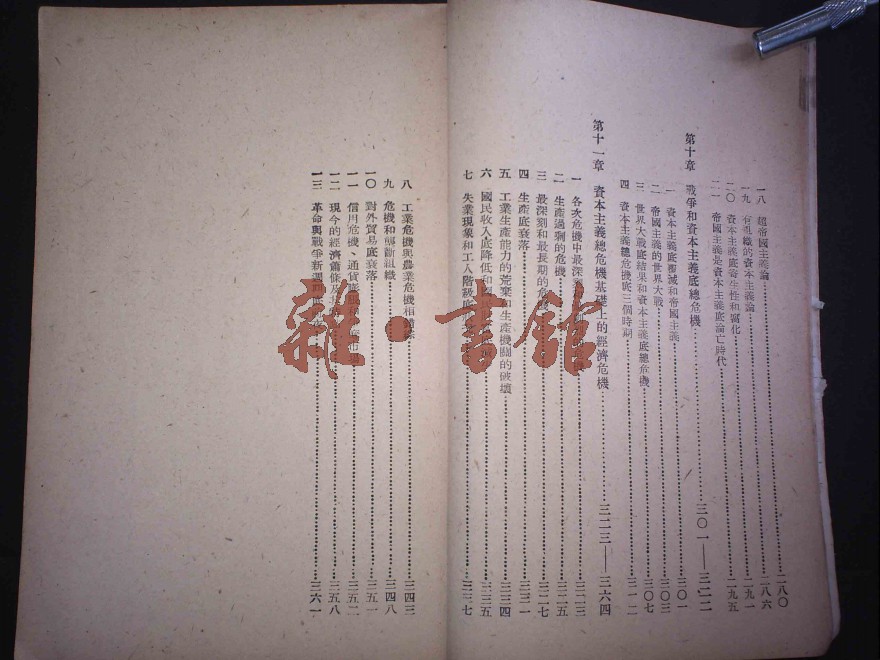 一八 超帝國主義論……二八〇
一九 有組織的資本主義論……二八六
二〇 資本主義底寄生性和腐化……二九一
二一 帝國主義是資本主義底淪亡時代……二九五
第十章 戰爭和資本主義底總危機……三〇一——三二二
一 資本主義底覆滅和帝國主義……三〇一
二 帝國主義的世界大戰……三〇三
三 世界大戰底結果和資本主義底總危機……三〇七
四 資本主義總危機底三個時期……三一二
第十一章 資本主義總危機基礎上的經濟危機……三二三——三六四
一 各次危機中最深……三二三
二 生產過剩的危機……三二五
三 最深刻和最長期的危機……三二七
四 生產底衰落……三三一
五 工業生產能力的荒棄和生產機關的破壞……三三四
六 國民收入底降低和國民……三三五
七 失業現象和工人階級底……三三七
八 工業危機與農業危機相錯綜……三四三
九 危機和壟斷組織……三四八
一〇 對外貿易底衰落……三五一
一一 信用危機、通貨膨脹和……三五二
一二 現今的經濟蕭條及其……三五八
一三 革命與戰爭新週期底……三六一
雜·書館